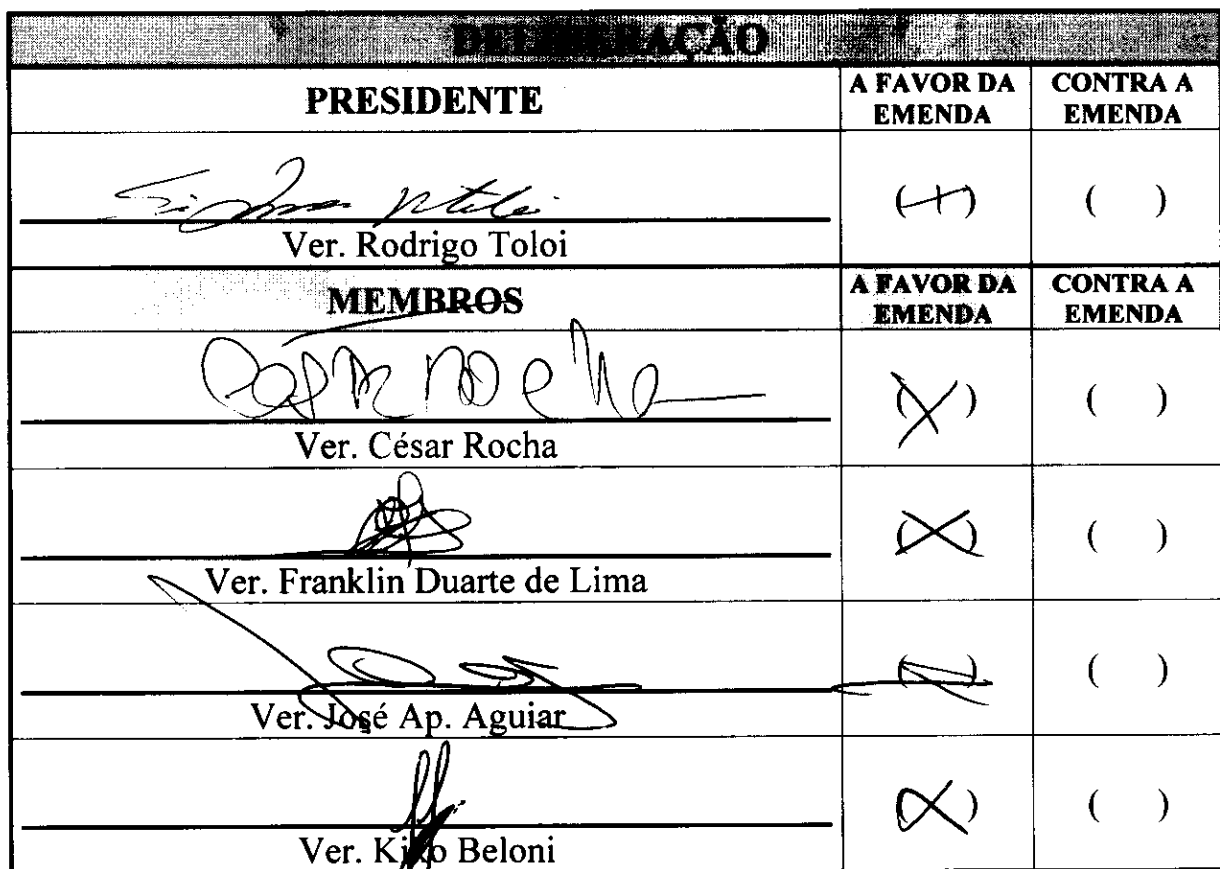 DELIBERAÇÃO
PRESIDENTE
A FAVOR DA EMENDA
CONTRA A EMENDA
( ) ( )
Ver. Rodrigo Toloi
MEMBROS
A FAVOR DA EMENDA
CONTRA A EMENDA
(X) ( )
Ver. César Rocha
(X) ( )
Ver. Franklin Duarte de Lima
( ) ( )
Ver. José Ap. Aguiar
(X) ( )
Ver. Kiko Beloni